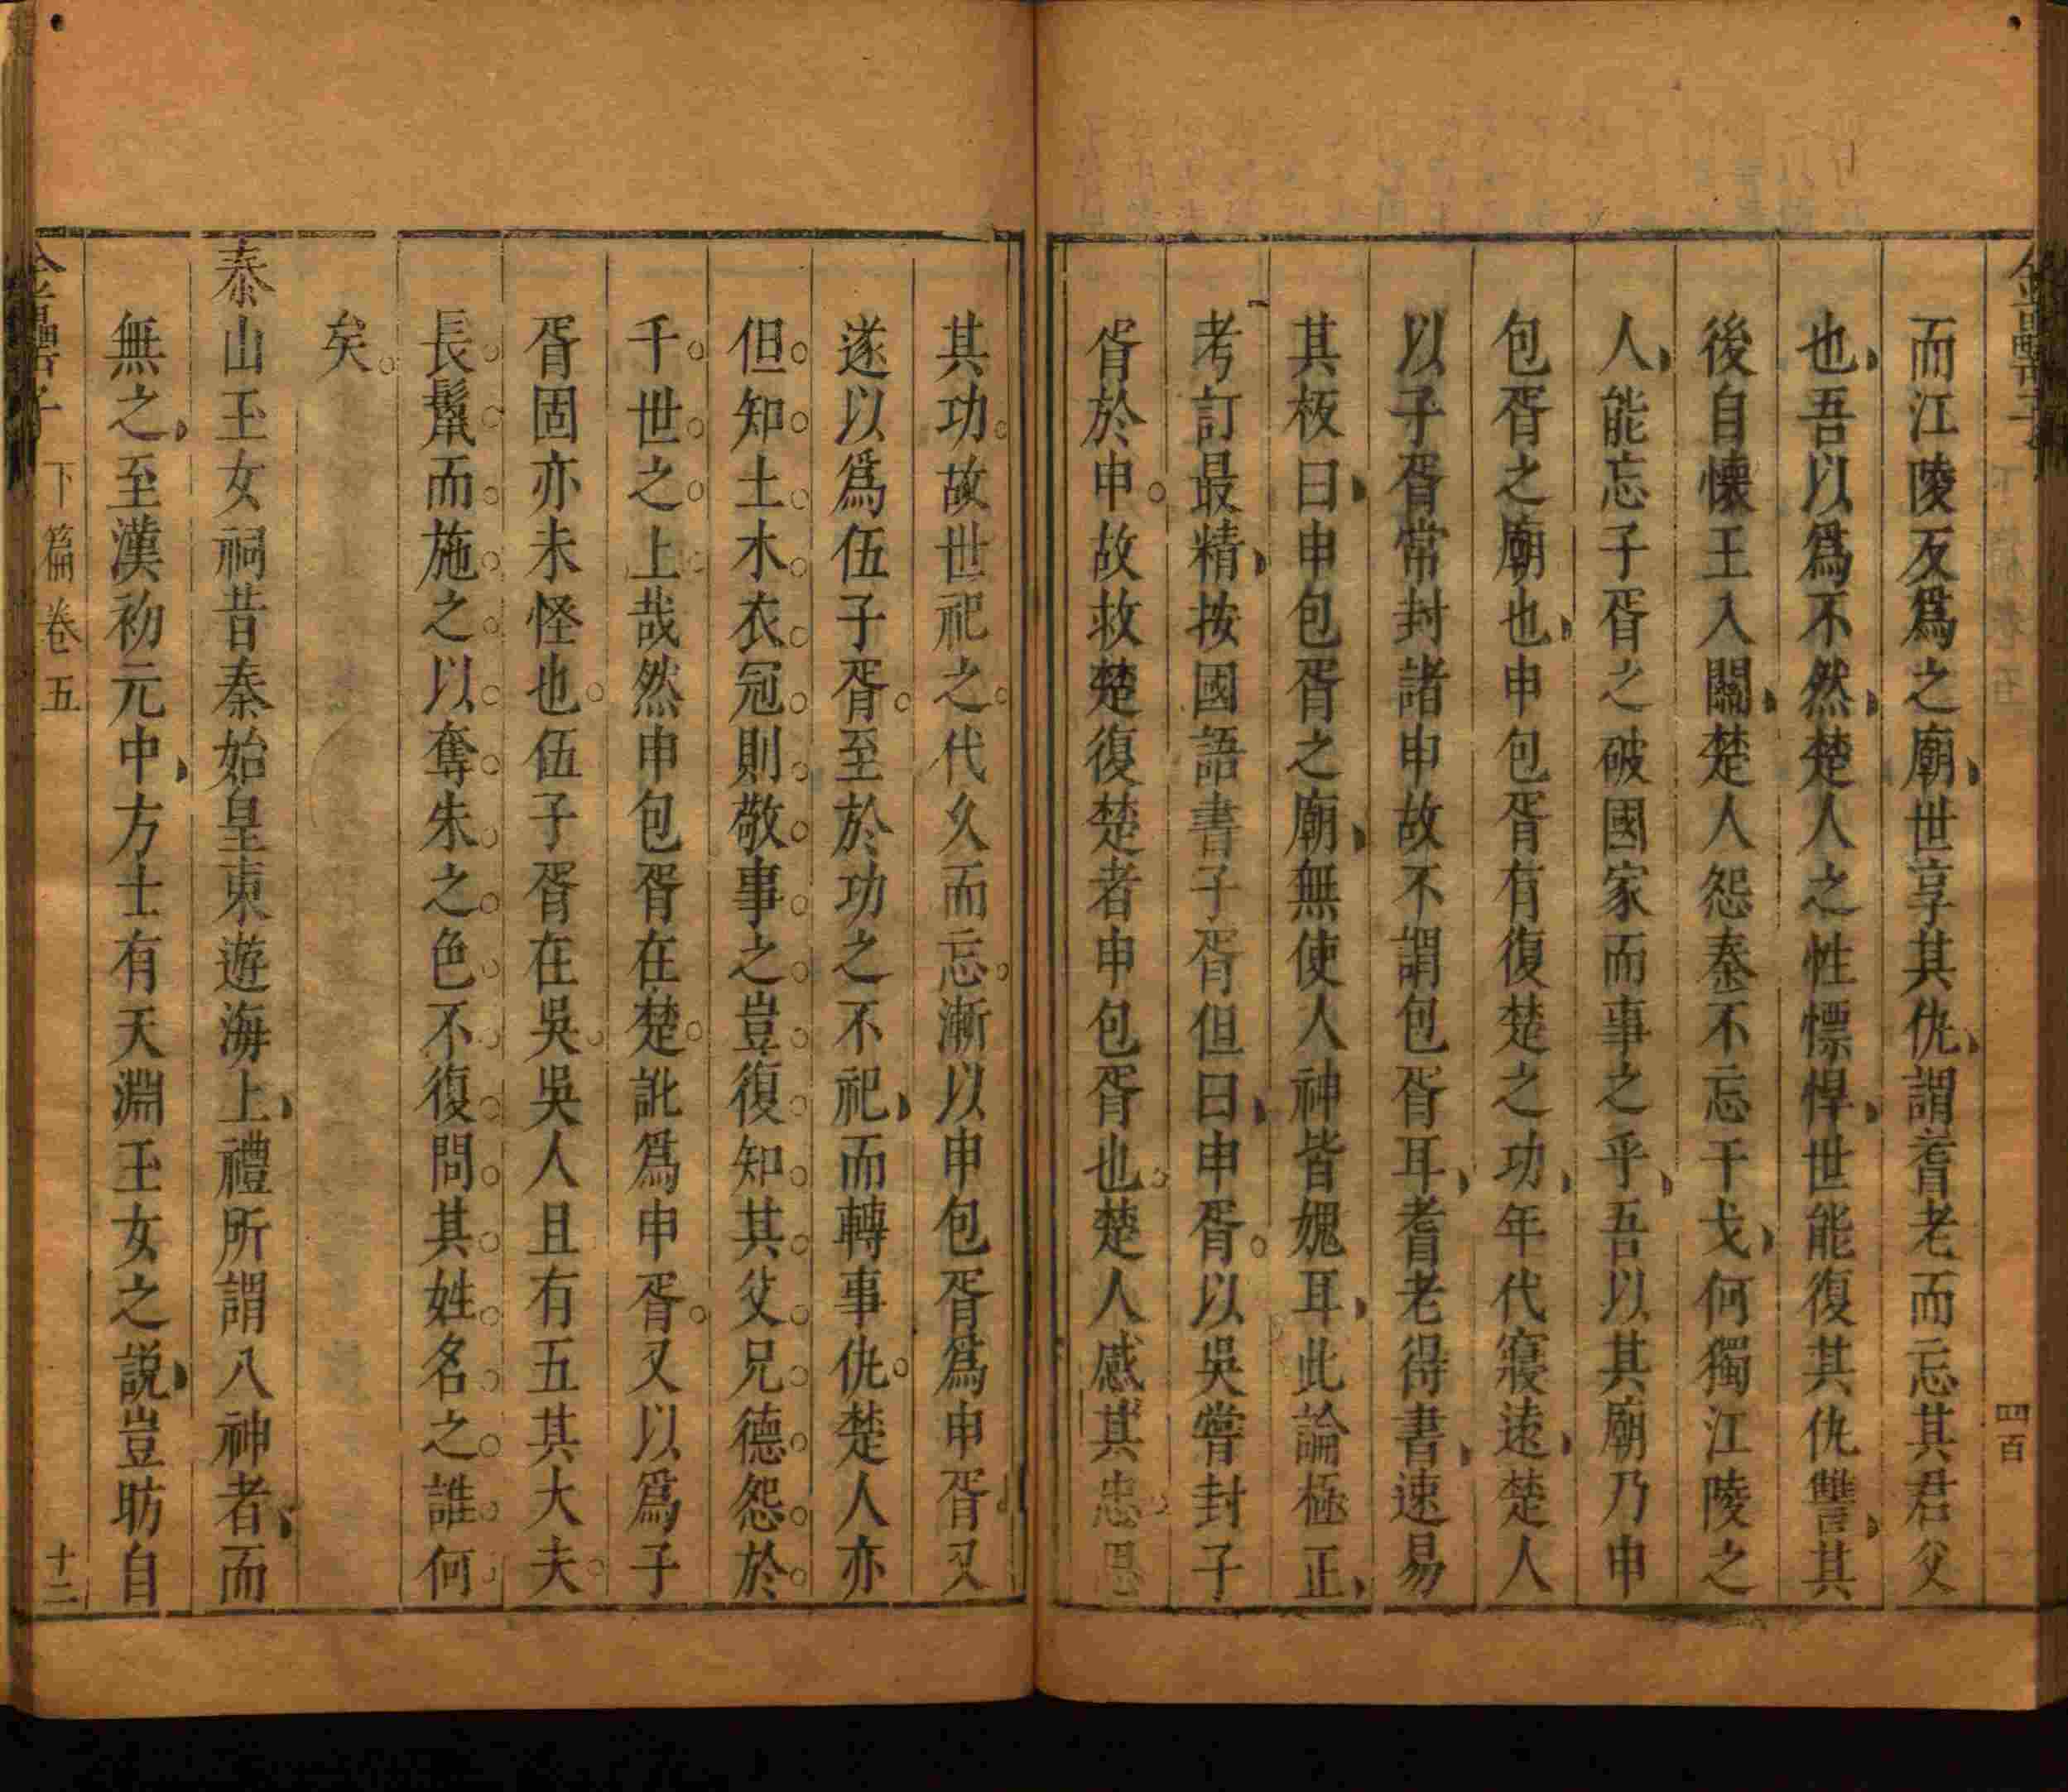 金罍子
四百
而江陵反爲之廟世享其仇謂耆老而忘其君父
也吾以爲不然楚人之性慓悍世能復其仇讐其
後自懷王入關楚人怨秦不忘干戈何獨江陵之
人能忘子胥之破國家而事之乎吾以其廟乃申
包胥之廟也申包胥有復楚之功年代寢遠楚人
以子胥常封諸申故不謂包胥耳耆老得書速易
其板曰申包胥之廟無使人神皆媿耳此論極正
考訂最精按國語書子胥但曰申胥以吳嘗封子
胥於申故救楚復楚者申包胥也楚人感其忠思
其功故世祀之代久而忘漸以申包胥爲申胥又
遂以爲伍子胥至於功之不祀而轉事仇楚人亦
但知土木衣冠則敬事之豈復知其父兄德怨於
千世之上哉然申包胥在楚訛爲申胥又以爲子
胥固亦未怪也伍子胥在吳吳人且有五其大夫
長鬣而施之以奪朱之色不復問其姓名之誰何
矣
泰山玉女祠昔秦始皇東遊海上禮所謂八神者而
無之至漢初元中方士有天淵玉女之説豈昉自
金罍子 下篇卷五 十二